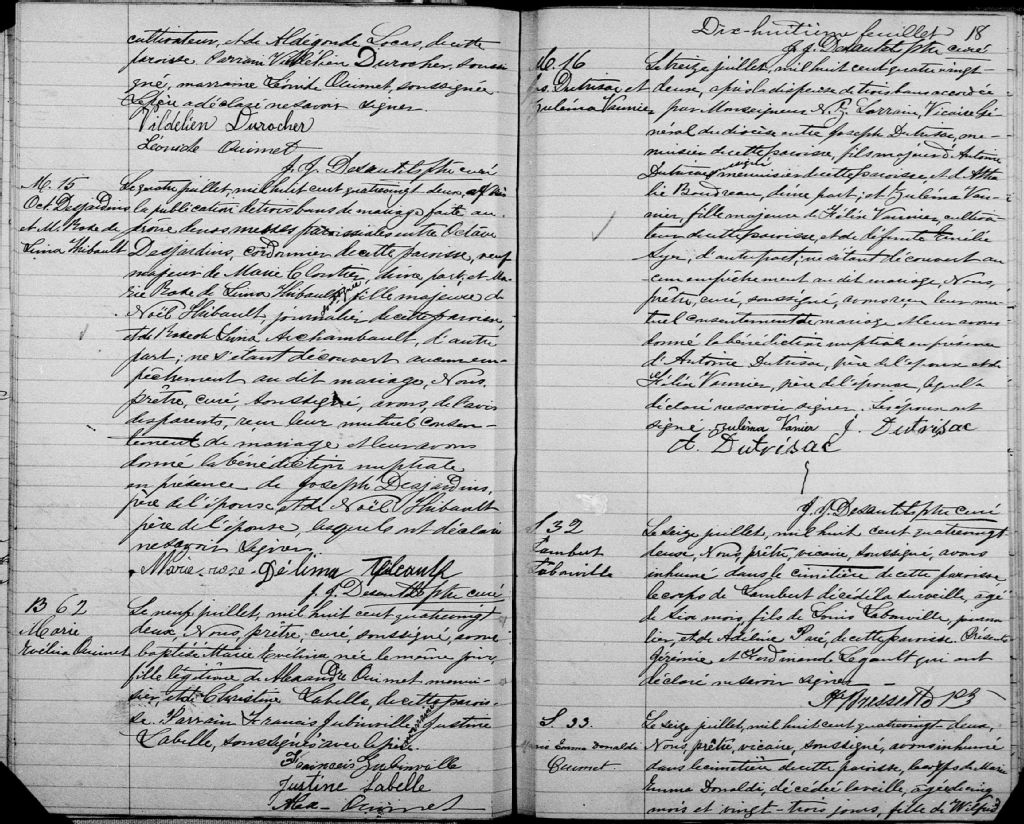 cultivateur, et de Aldégonde Locas, de cette
paroisse. Parrain Vildélien Durocher, soussi-
gné, marraine Léonide Ouimet, soussignée
Le père a déclaré ne savoir signer.
Vildelien Durocher
Léonide Ouimet
J. J. Desautels ptre curé
M. 15
Oct. Desjardins
et M. Rose de
Lima Thibault
Le quatre juillet, mil huit cent quatre vingt deux,
la publication de trois bans de mariage faite au
prône de nos messes paroissiales entre Octave
Desjardins, cordonnier de cette paroisse,
majeur de Marie Cloutier, d'une part; et Ma-
rie Rose de Lima Thibault, fille majeure de
Noël Thibault, journalier de cette paroisse,
et de Rose de Lima Archambault, d'autre
part; ne s'étant découvert aucun em-
pêchement au dit mariage, Nous,
prêtre, curé, soussigné, avons, de l'avis
des parents, reçu leur mutuel consen-
tement de mariage et leur avons
donné la bénédiction nuptiale
en présence de Joseph Desjardins,
père de l'époux et de Noël Thibault
père de l'épouse, lesquels ont déclaré
ne savoir signer.
Marie rose Délima
J. J. Desautels ptre curé
B 62
Marie
Evélina Ouimet
Le neuf juillet, mil huit cent quatre vingt
deux, Nous, prêtre, curé soussigné, avons
baptisé Marie Evélina née le même jour,
fille légitime de Alexandre Ouimet menui-
sier, et de Christine Labelle, de cette parois-
se. Parrain Francis Jubinville, Justine
Labelle, soussignés avec le père.
François Jubinville
Justine Labelle
Alex Ouimet
Dix-huitième feuillet 18
J. J. Desautels ptre curé
M. 16
Jos. Dutrisac et
Zuléma Vannier
Le treize juillet, mil huit cent quatre vingt-
deux, après la dispense de trois bans accordée
par Monseigneur N. Z. Lorrain, Vicaire Gé-
néral du diocèse entre Joseph Dutrisac, me-
nuisier de cette paroisse, fils majeur d'Antoine
Dutrisac menuisier de cette paroisse, et d'Atha-
lie Boudreau, d'une part; et Zuléma Van-
nier, fille majeure de Félix Vannier, cultiva-
teur de cette paroisse, et de défunte Emélie
Cyr, d'autre part; ne s'étant découvert au-
cun empêchement au dit mariage, Nous,
prêtre, curé, soussigné, avons reçu leur mu-
tuel consentement de mariage et leur avons
donné la bénédiction nuptiale en présence
d'Antoine Dutrisac, père de l'époux et de
Félix Vannier, père de l'épouse, lequel a
déclaré ne savoir signer. Les époux ont
signé. Zulema Vanier J. Dutrisac
A. Dutrisac
J. J. Desautels ptre curé
S 32
Lambert
Labonville
Le seize juillet, mil huit cent quatre vingt
deux, Nous, prêtre, vicaire, soussigné, avons
inhumé dans le cimetière de cette paroisse
le corps de Lambert décédé la surveille, âgé
de six mois, fils de Louis Labonville, journa-
lier, et de Azélie Paré, de cette paroisse. Présents
Jérémie et Ferdinand Legault qui ont
déclaré ne savoir signer.
S. 33.
Marie Emma Donalda
Ouimet.
Le seize juillet, mil huit cent quatre vingt deux,
Nous, prêtre, vicaire, soussigné, avons inhumé
dans le cimetière de cette paroisse, le corps de Marie
Emma Donalda, décédée la veille, âgée de cinq
mois et vingt-trois jours, fille de Wilfrid